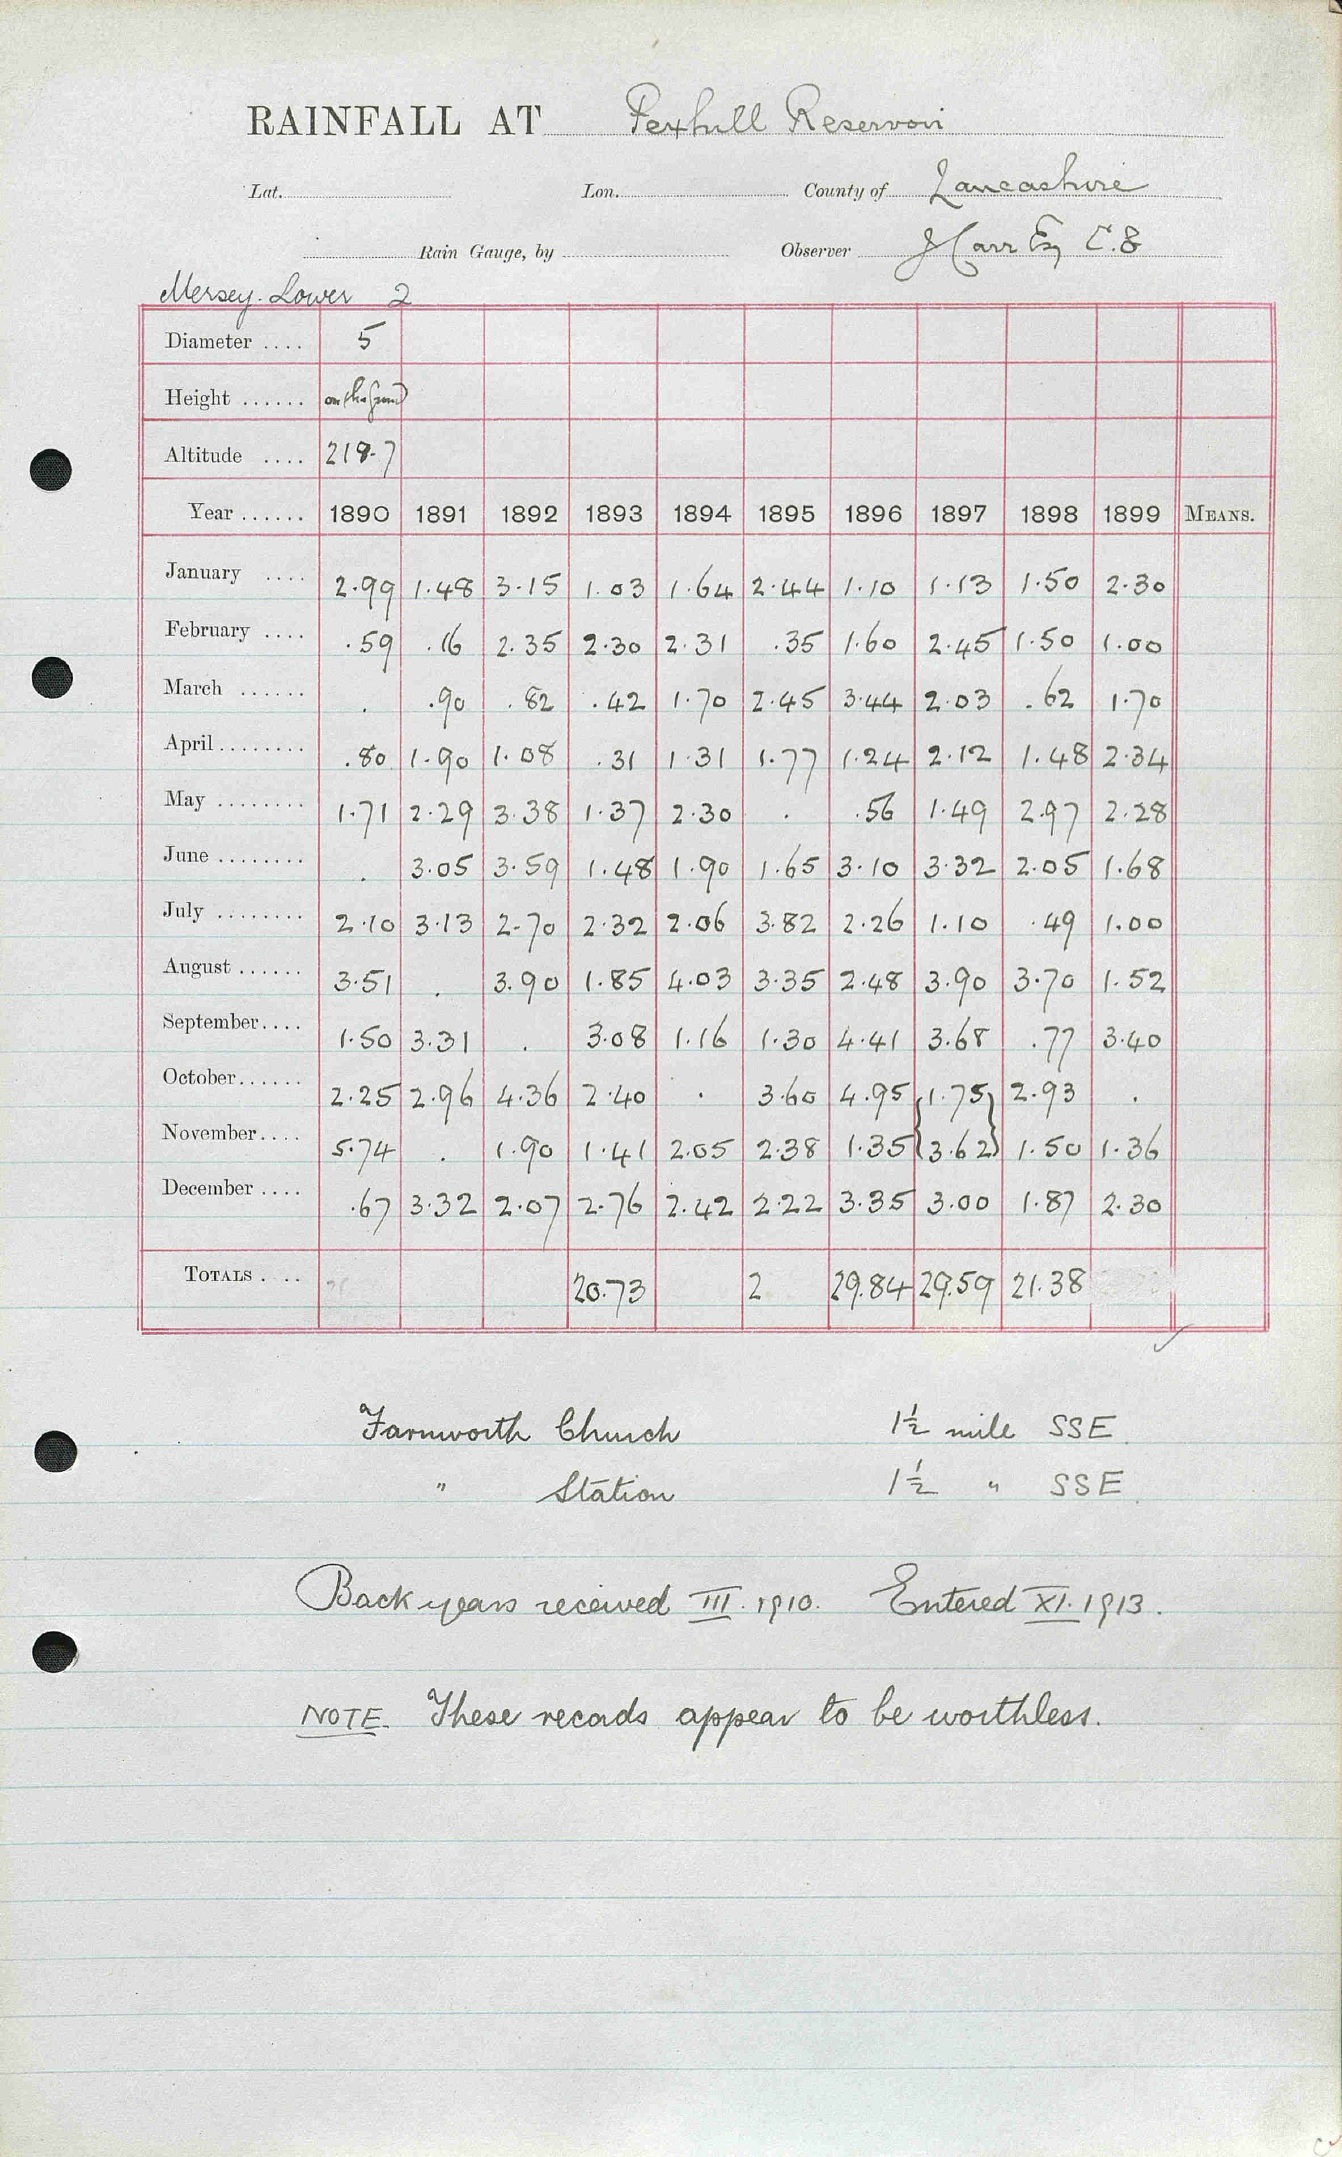 RAINFALL AT Pexhill Reservoir
Lat. Lon. County of Lancashire
Rain Gauge, by Observer J Carr Esq C.E
Mersey. Lower 2
Diameter .... 5
Height ...... on the ground
Altitude .... 219.7
Year ...... 1890 1891 1892 1893 1894 1895 1896 1897 1898 1899 MEANS.
January .... 2.99 1.48 3.15 1.03 1.64 2.44 1.10 1.13 1.50 2.30
February .... .59 .16 2.35 2.30 2.31 .35 1.60 2.45 1.50 1.00
March ...... . .90 .82 .42 1.70 2.45 3.44 2.03 .62 1.70
April ........ .80 1.90 1.08 .31 1.31 1.77 1.24 2.12 1.48 2.34
May ........ 1.71 2.29 3.38 1.37 2.30 . .56 1.49 2.97 2.28
June ........ . 3.05 3.59 1.48 1.90 1.65 3.10 3.32 2.05 1.68
July ........ 2.10 3.13 2.70 2.32 2.06 3.82 2.26 1.10 .49 1.00
August ...... 3.51 . 3.90 1.85 4.03 3.35 2.48 3.90 3.70 1.52
September.... 1.50 3.31 . 3.08 1.16 1.30 4.41 3.68 .77 3.40
October...... 2.25 2.96 4.36 2.40 . 3.60 4.95 {1.75} 2.93 .
November.... 5.74 . 1.90 1.41 2.05 2.38 1.35 {3.62} 1.50 1.36
December .... .67 3.32 2.07 2.76 2.42 2.22 3.35 3.00 1.87 2.30
TOTALS .... 20.73 2 29.84 29.59 21.38
Farnworth Church 1½ mile SSE
" Station 1½ " SSE
Back years received III. 1910. Entered XI. 1913.
NOTE. These records appear to be worthless.